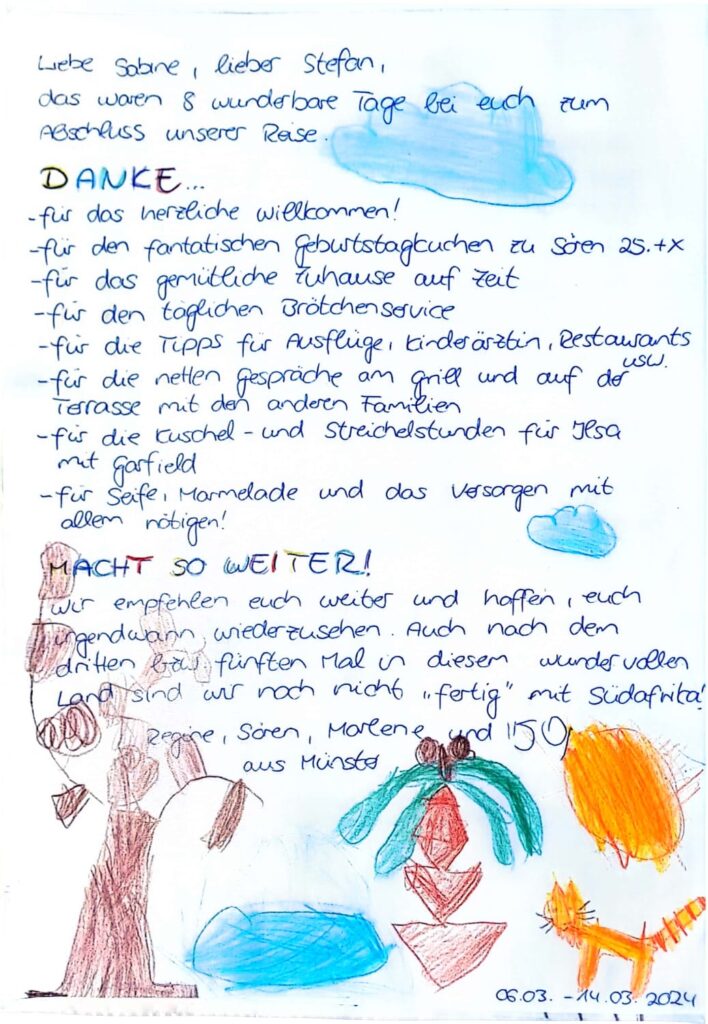 Liebe Sabine, lieber Stefan,
das waren 8 wunderbare Tage bei euch zum
Abschluss unserer Reise.
DANKE...
-für das herzliche Willkommen!
-für den fantatischen Geburtstagkuchen zu Sören 25.+X
-für das gemütliche Zuhause auf Zeit
-für den täglichen Brötchenservice
-für die Tipps für Ausflüge, Kinderärztin, Restaurants
usw.
-für die netten Gespräche am Grill und auf der
Terrasse mit den anderen Familien
-für die Kuschel- und Streichelstunden für Ilsa
mit Garfield
-für Seife, Marmelade und das Versorgen mit
allem nötigen!
MACHT SO WEITER!
Wir empfehlen euch weiter und hoffen, euch
irgendwann wiederzusehen. Auch nach dem
dritten bzw. fünften Mal in diesem wundervollen
Land sind wir noch nicht „fertig" mit Südafrika!
Regine, Sören, Marlene und
aus Münster
06.03. - 14.03.2024